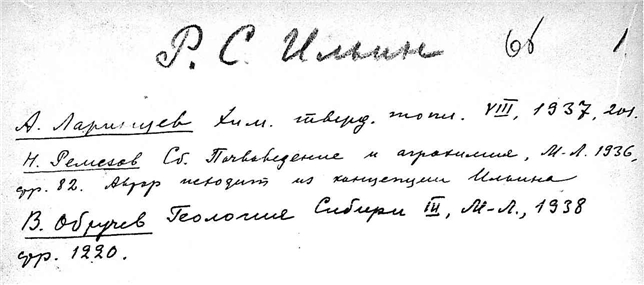 Р. С. Ильин 66 1
А. Ларищев Хим. тверд. топл. VIII, 1937, 201.
Н. Ремезов Сб. Почвоведение и агрохимия, М-Л. 1936,
стр. 82. Автор исходит из концепции Ильина
В. Обручев Геология Сибири III, М-Л., 1938
стр. 1220.